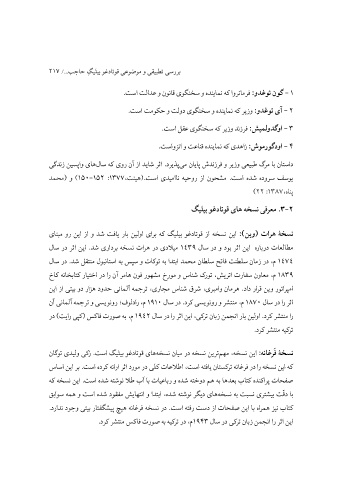 بررسی تطبیقی و موضوعی قوتادغو بیلیگ حاجب.../ ۲۱۷
۱ - گون توغدو: فرمانروا که نماینده و سخنگوی قانون و عدالت است.
۲ - آی تولدو: وزیر که نماینده و سخنگوی دولت و حکومت است.
۳ - اوگدولمیش: فرزند وزیر که سخنگوی عقل است.
۴ - اودگورموش: زاهدی که نماینده قناعت و انزواست.
داستان با مرگ طبیعی وزیر و فرزندش پایان می‌پذیرد. اثر شاید از آن روی که سال‌های واپسین زندگی
یوسف سروده شده است، مشحون از روحیه ناامیدی است.(هیئت،۱۳۷۷: ۱۵۲-۱۵۰) و (محمد
پناه،۱۳۸۷: ۲۲)
۲-۳. معرفی نسخه های قوتادغو بیلیگ
نسخهٔ هرات (وین): این نسخه از قوتادغو بیلیگ که برای اولین بار یافت شد و از این رو مبنای
مطالعات درباره این اثر بود و در سال ۱۴۳۹ میلادی در هرات نسخه برداری شد. این اثر در سال
۱۴۷۴ م، در زمان سلطنت فاتح سلطان محمد ابتدا به توکات و سپس به استانبول منتقل شد. در سال
۱۸۳۹ م، معاون سفارت اتریش، تورک شناس و مورخ مشهور فون هامر آن را در اختیار کتابخانه کاخ
امپراتور وین قرار داد. هرمان وامبری، شرق شناس مجاری، ترجمه آلمانی حدود هزار دو بیتی از این
اثر را در سال ۱۸۷۰ م، منتشر و رونویسی کرد. در سال ۱۹۱۰ م، رادلوف؛ رونویسی و ترجمه آلمانی آن
را منتشر کرد. اولین بار انجمن زبان ترکی، این اثر را در سال ۱۹۴۲ م، به صورت فاکس (کپی رایت) در
ترکیه منتشر کرد.
نسخهٔ فَرغانه: این نسخه، مهم‌ترین نسخه در میان نسخه‌های قوتادغو بیلیگ است. زکی ولیدی توگان
که این نسخه را در فرغانه ترکستان یافته است، اطلاعات کلی در مورد اثر ارائه کرده است. بر این اساس
صفحات پراکنده کتاب بعدها به هم دوخته شده و رباعیات با آب طلا نوشته شده است. این نسخه که
با دقّت بیشتری نسبت به نسخه‌های دیگر نوشته شده، ابتدا و انتهایش مفقود شده است و همه سوابق
کتاب نیز همراه با این صفحات از دست رفته است. در نسخه فرغانه هیچ پیشگفتار بیتی وجود ندارد.
این اثر را انجمن زبان ترکی در سال ۱۹۴۳م، در ترکیه به صورت فاکس منتشر کرد.